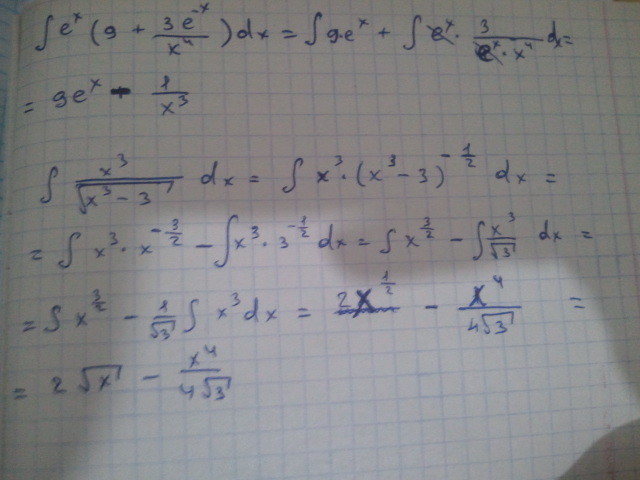 ∫ e^x (9 + 3e^{-x}/x^4) dx = ∫ 9e^x + ∫ e^x · 3/(e^x · x^4) dx =
= 9e^x - 1/x^3
∫ x^3/√(x^3 - 3) dx = ∫ x^3 · (x^3 - 3)^{-1/2} dx =
= ∫ x^3 · x^{-3/2} - ∫ x^3 · 3^{-1/2} dx = ∫ x^{3/2} - ∫ x^3/√3 dx =
= ∫ x^{3/2} - 1/√3 ∫ x^3 dx = 2x^{1/2} - x^4/(4√3) =
= 2√x - x^4/(4√3)